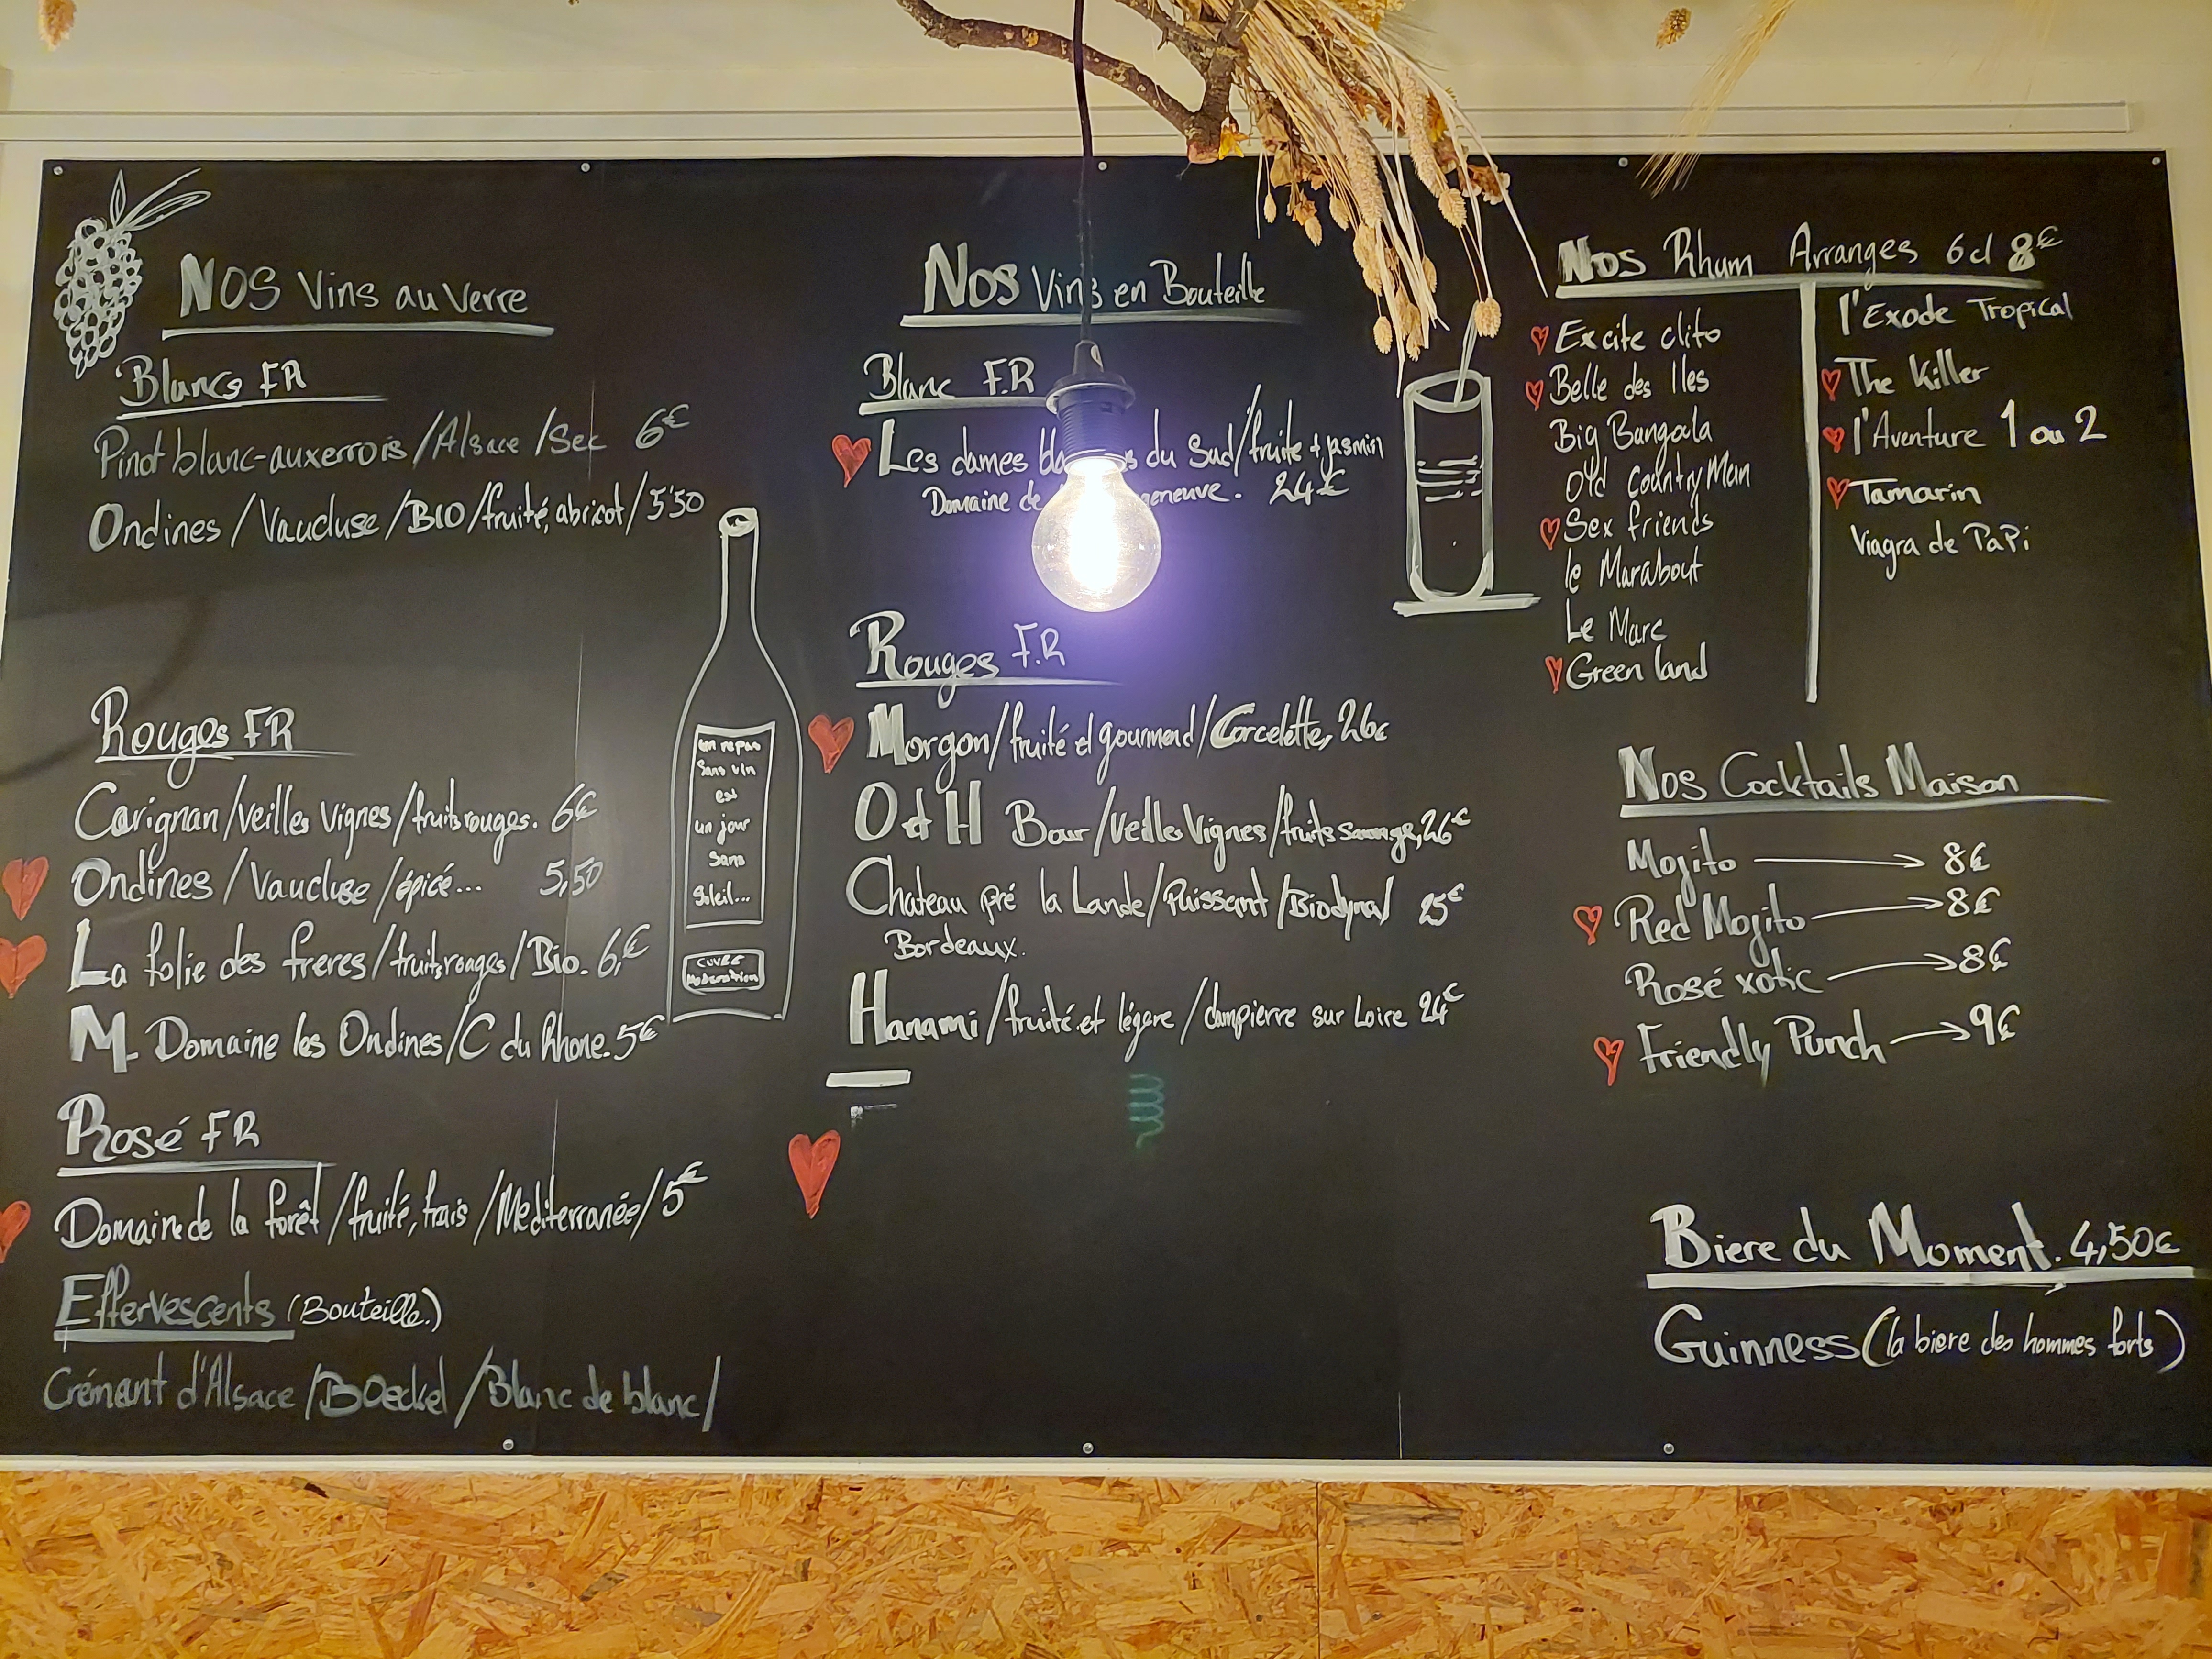 Nos Vins au Verre
Blancs FR
Pinot blanc-auxerrois / Alsace / Sec 6€
Ondines / Vaucluse / BIO / fruité, abricot / 5'50
Rouges FR
Carignan / Veilles Vignes / fruits rouges. 6€
Ondines / Vaucluse / épicé... 5,50
La folie des freres / fruits rouges / Bio. 6,€
M. Domaine les Ondines / C du Rhone. 5€
Rosé FR
Domaine de la forêt / fruité, frais / Mediterranée / 5€
Effervescents (Bouteille.)
Crémant d'Alsace / BOeckel / Blanc de blanc /
un repas
Sans vin
est
un jour
Sans
Soleil...
CUVÉE
Moderation
Nos Vins en Bouteille
Blanc F.R
Les dames du Sud / fruite + jasmin
Domaine de 24€
Rouges F.R
Morgon / fruité et gourmand / Corcelette, 26€
O et H Bour / Veilles Vignes / fruits sauvage, 26€
Chateau pré la Lande / Puissant / Biodyna / 25€
Bordeaux.
Hanami / fruité et légere / dampierre sur Loire 24€
Nos Rhum Arranges 6 cl 8€
Excite clito
Belle des Iles
Big Bungala
Old Country Man
Sex friends
le Marabout
Le Marc
Green land
l'Exode Tropical
The Killer
l'Aventure 1 ou 2
Tamarin
Viagra de PaPi
Nos Cocktails Maison
Mojito 8€
Red Mojito 8€
Rosé xotic 8€
Friendly Punch 9€
Biere du Moment. 4,50€
Guinness (la biere des hommes forts)